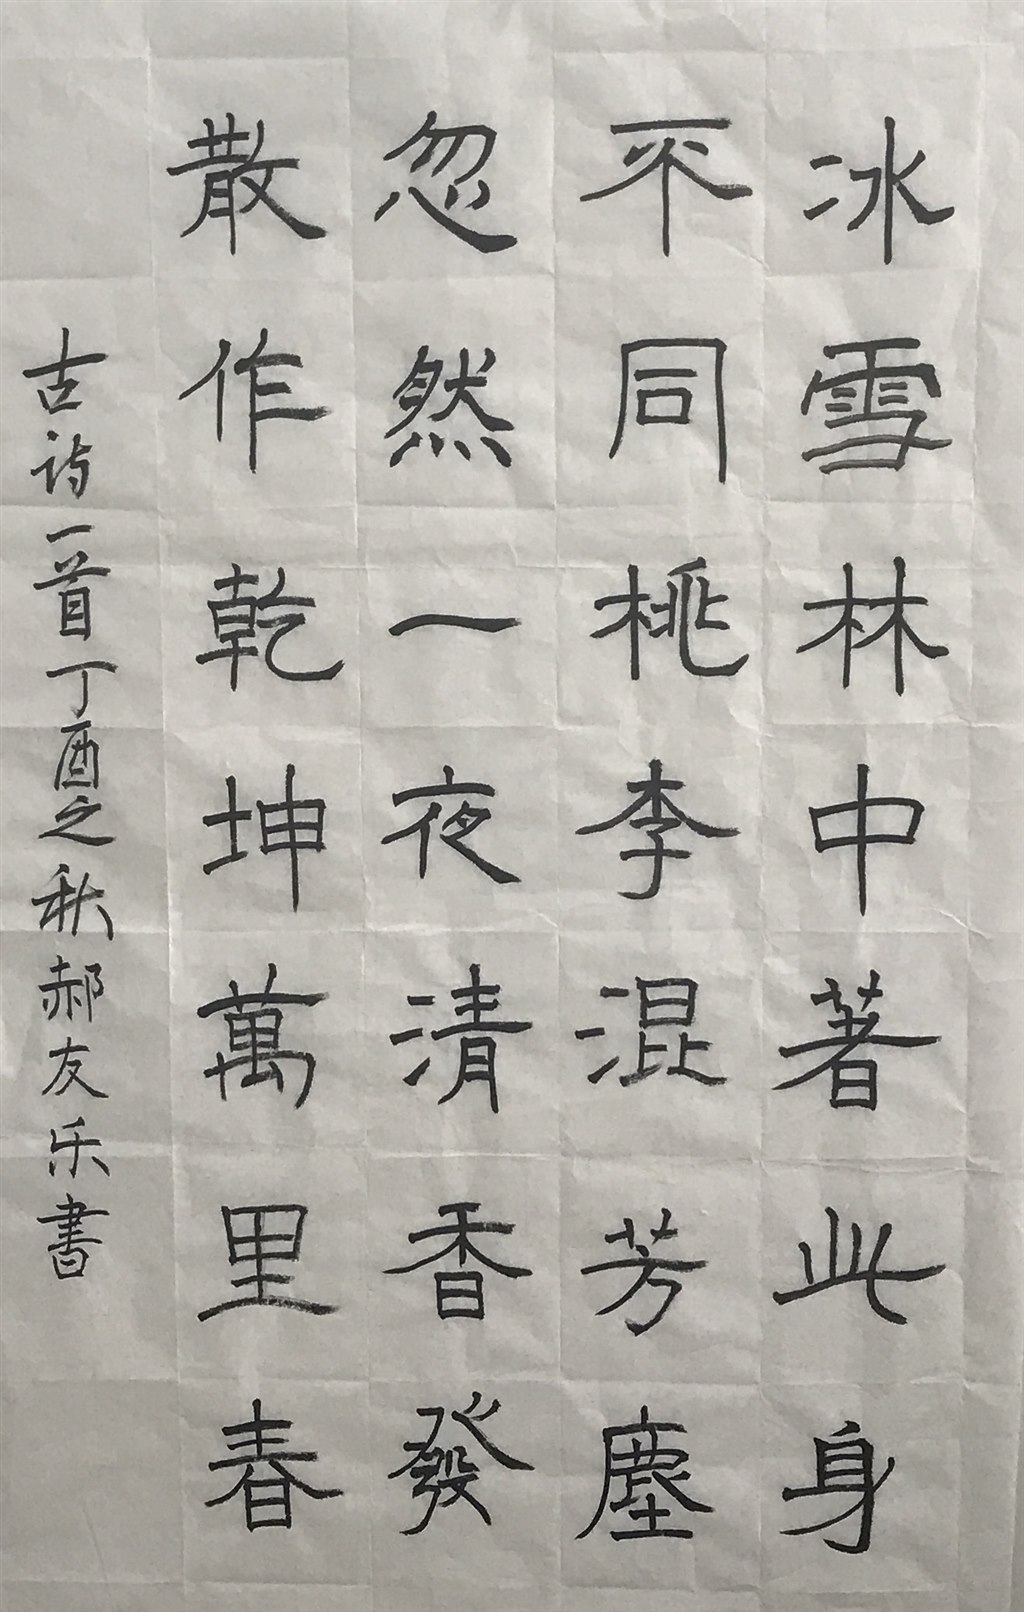 冰雪林中著此身
不同桃李混芳塵
忽然一夜清香發
散作乾坤萬里春
古诗一首丁酉之秋郝友乐書